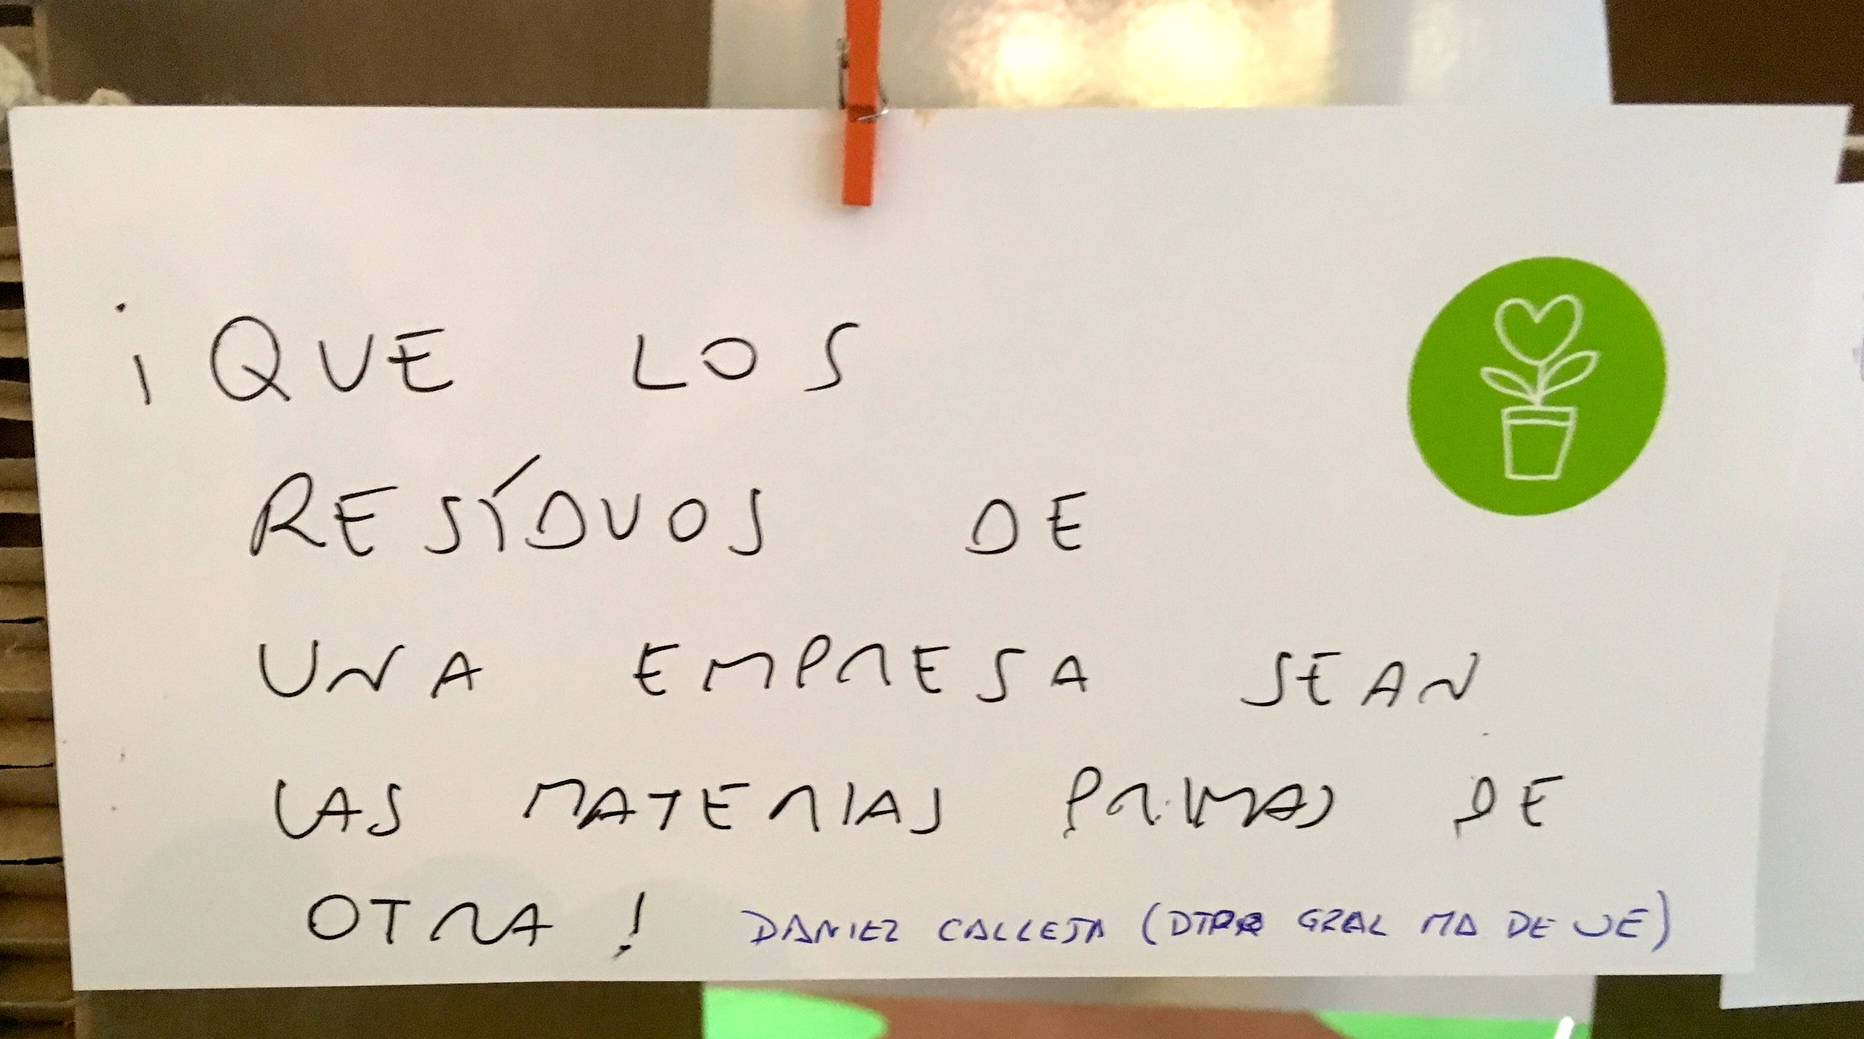 ¡QUE LOS
RESÍDUOS DE
UNA EMPRESA SEAN
LAS MATERIAS PRIMAS DE
OTRA! DANIEL CALLEJA (DTOR GRAL MA DE UE)